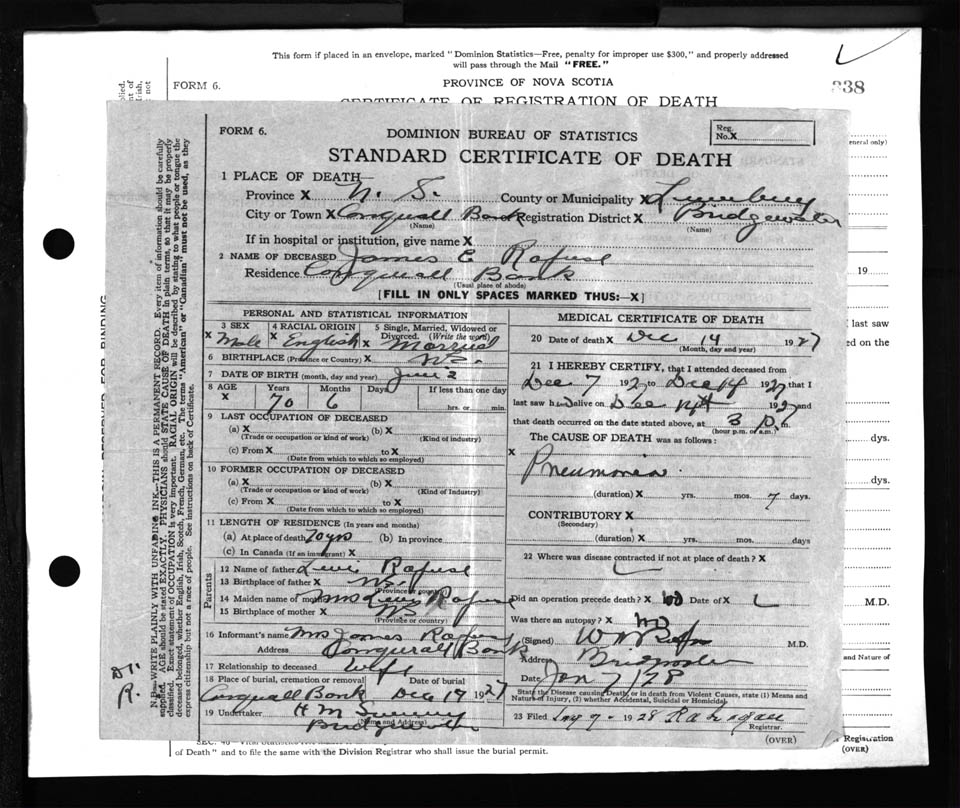 This form if placed in an envelope, marked "Dominion Statistics—Free, penalty for improper use $300," and properly addressed
will pass through the Mail "FREE."
FORM 6.
PROVINCE OF NOVA SCOTIA
338
CERTIFICATE OF REGISTRATION OF DEATH
FORM 6.
DOMINION BUREAU OF STATISTICS
Reg. No. X
STANDARD CERTIFICATE OF DEATH
1 PLACE OF DEATH—
Province X N. S. County or Municipality X Lunenburg
City or Town X Conquerall Bank Registration District X Bridgewater
(Name) (Name)
If in hospital or institution, give name X
2 NAME OF DECEASED James E Rafuse
Residence Conquerall Bank
(Usual place of abode)
[FILL IN ONLY SPACES MARKED THUS:—X]
PERSONAL AND STATISTICAL INFORMATION
3 SEX 4 RACIAL ORIGIN 5 Single, Married, Widowed or Divorced. (Write the word)
X Male X English X Married
6 BIRTHPLACE (Province or Country) X N.S.
7 DATE OF BIRTH (month, day and year) June 2
8 AGE Years Months Days If less than one day
X 70 6 hrs. or min.
9 LAST OCCUPATION OF DECEASED
(a) X (b) X
(Trade or occupation or kind of work) (Kind of industry)
(c) From X to X
(Date from which to which so employed)
10 FORMER OCCUPATION OF DECEASED
(a) X (b) X
(Trade or occupation or kind of work) (Kind of Industry)
(c) From X to X
(Date from which to which so employed)
11 LENGTH OF RESIDENCE (In years and months)
(a) At place of death 70 yrs (b) In province
(c) In Canada (If an immigrant) X
Parents
12 Name of father Levi Rafuse
13 Birthplace of father X N.S.
(Province or country)
14 Maiden name of mother Mrs Levi Rafuse
15 Birthplace of mother X N.S.
(Province or country)
16 Informant's name Mrs James Rafuse
Address Conquerall Bank
17 Relationship to deceased wife
18 Place of burial, cremation or removal Date of burial
Conquerall Bank Dec 19 1927
19 Undertaker H M
(Name and Address)
Bridgewater
MEDICAL CERTIFICATE OF DEATH
20 Date of death X Dec 14 1927
(Month, day and year)
21 I HEREBY CERTIFY, that I attended deceased from
Dec 7 192 to Dec 14 1927 that I
last saw him alive on Dec 14 1927 and
that death occurred on the date stated above, at 3 P. m.
(hour p.m. or a.m.)
The CAUSE OF DEATH was as follows:
X Pneumonia
(duration) X yrs. mos. 7 days.
CONTRIBUTORY X
(Secondary)
(duration) X yrs. mos. days
22 Where was disease contracted if not at place of death? X
Did an operation precede death? X No Date of X
Was there an autopsy? X No
(Signed) M.D.
Address Bridgewater
Date Jan 7/28
State the Disease causing Death, or in death from Violent Causes, state (1) Means and
Nature of Injury, (2) whether Accidental, Suicidal or Homicidal.
23 Filed 1928
Registrar.
(OVER)
N.B—WRITE PLAINLY WITH UNFADING INK.—THIS IS A PERMANENT RECORD. Every item of information should be carefully
supplied. AGE should be stated EXACTLY. PHYSICIANS should STATE CAUSE OF DEATH in plain terms, so that it may be properly
classified. Exact statement of OCCUPATION is very important. RACIAL ORIGIN will be described by stating to what people or tongue the
deceased belonged, whether English, Irish, Scotch, French, German, etc. The terms "American" or "Canadian" must not be used, as they
express citizenship but not a race of people. See instructions on back of Certificate.
eneral only)
19
last saw
ed on the
dys.
dys.
M.D.
and Nature of
Registration
(OVER)
of Death" and to file the same with the Division Registrar who shall issue the burial permit.